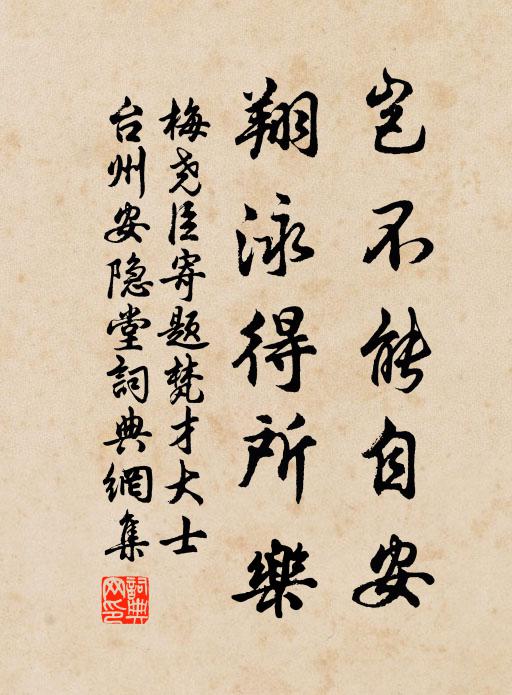 岂不能自安
翔泳得所樂
梅尧臣寄题梵才大士
台州安隐堂詞典網集
詞典
网印